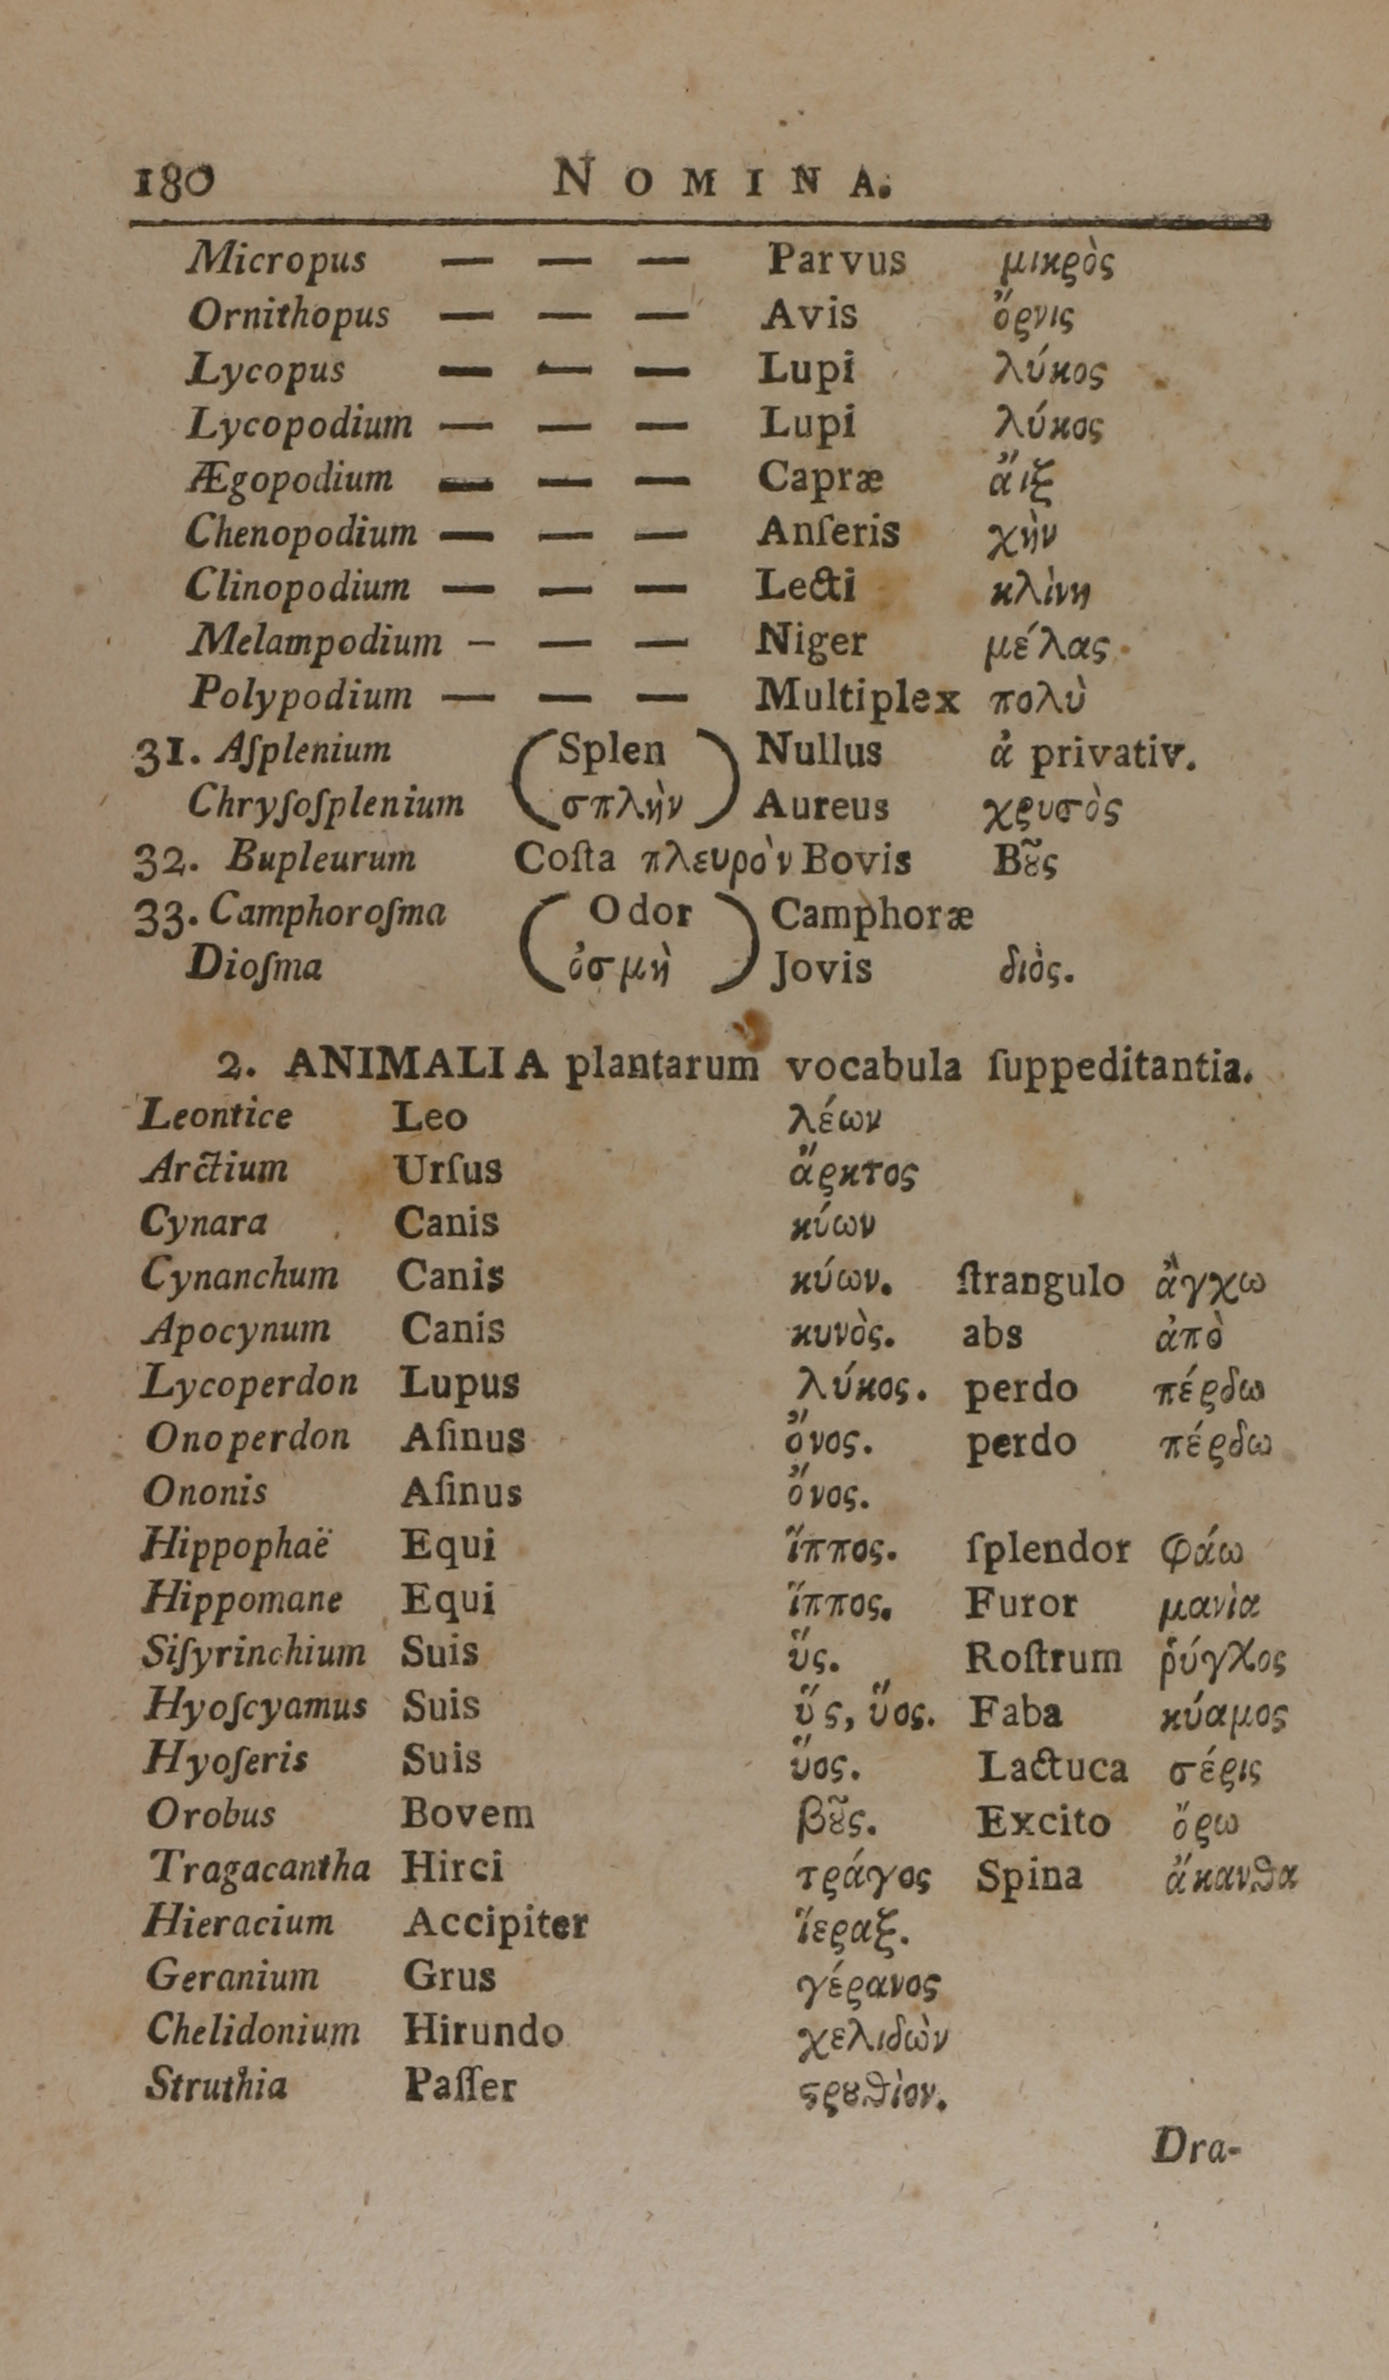 180 NOMINA.
Micropus — — — Parvus μικρὸς
Ornithopus — — — Avis ὄρνις
Lycopus — — — Lupi λύκος
Lycopodium — — — Lupi λύκος
Ægopodium — — — Capræ ἄιξ
Chenopodium — — — Anſeris χὴν
Clinopodium — — — Lecti κλὶνη
Melampodium – — — Niger μέλας
Polypodium — — — Multiplex πολὺ
31. Aſplenium (Splen) Nullus ἀ privativ.
Chryſoſplenium (σπλὴν) Aureus χρυσὸς
32. Bupleurum Coſta πλευρὸν Bovis Βȣ͂ς
33. Camphoroſma (Odor) Camphoræ
Dioſma (ὀσμὴ) Jovis διὸς.
2. ANIMALIA plantarum vocabula ſuppeditantia.
Leontice Leo λέων
Arctium Urſus ἄρκτος
Cynara Canis κύων
Cynanchum Canis κύων. ſtrangulo ἄγχω
Apocynum Canis κυνὸς. abs ἀπὸ
Lycoperdon Lupus λύκος. perdo πέρδω
Onoperdon Aſinus ὄνος. perdo πέρδω
Ononis Aſinus ὄνος.
Hippophaë Equi ἵππος. ſplendor φάω
Hippomane Equi ἵππος. Furor μανὶα
Siſyrinchium Suis ὕς. Roſtrum ῥύγχος
Hyoſcyamus Suis ὕς, ὕος. Faba κύαμος
Hyoſeris Suis ὕος. Lactuca σέρις
Orobus Bovem βȣ͂ς. Excito ὄρω
Tragacantha Hirci τράγος Spina ἄκανϑα
Hieracium Accipiter ἵεραξ.
Geranium Grus γέρανος
Chelidonium Hirundo χελιδὼν
Struthia Paſſer ϛρȣϑὶον.
Dra-